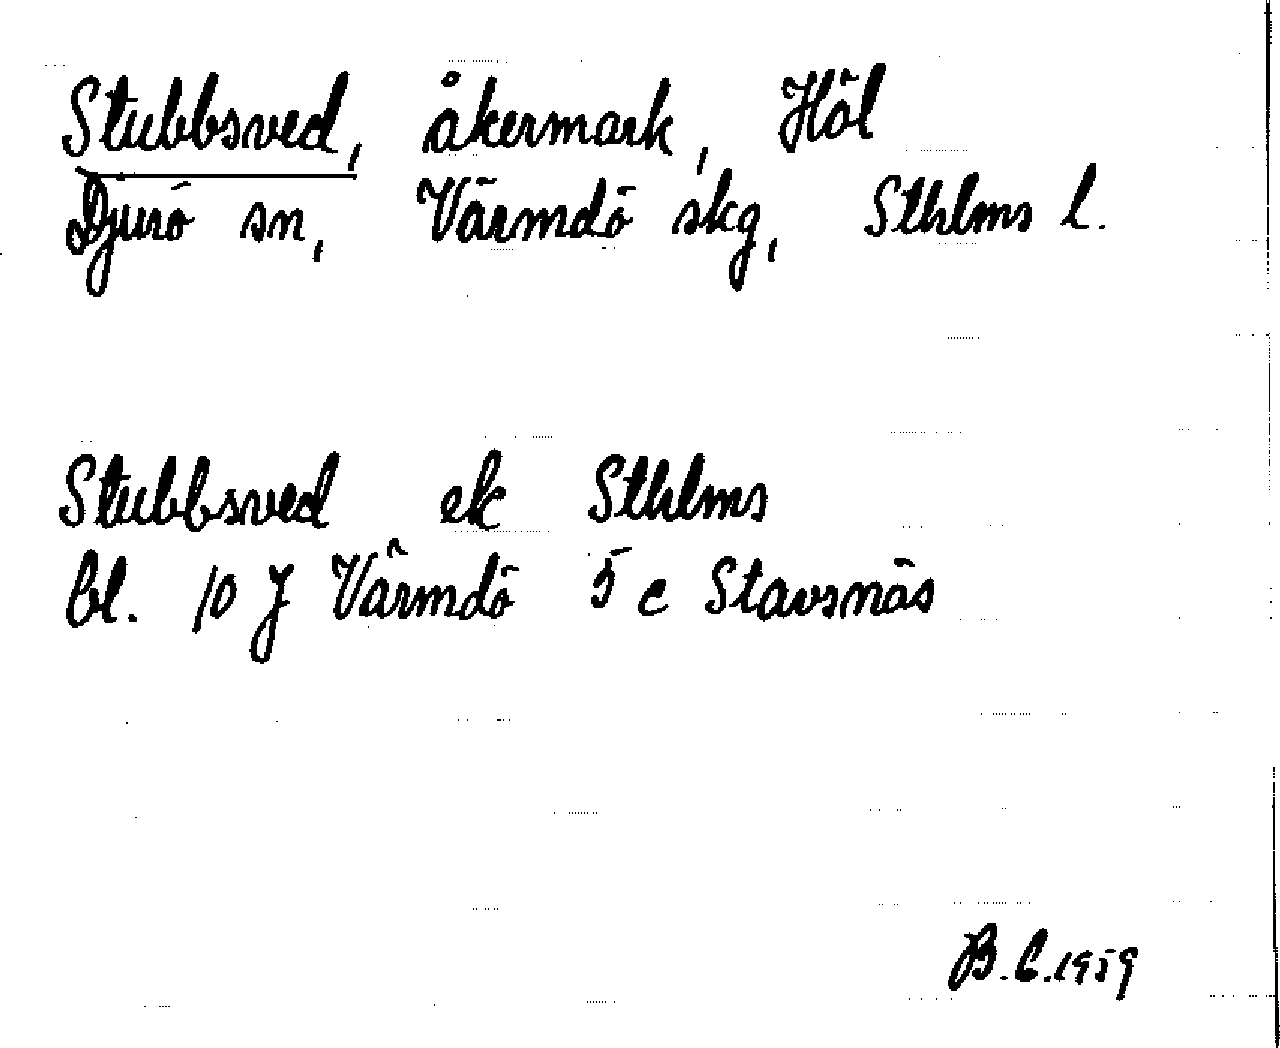 Stubbsved, åkermark, Höl
Djurö sn, Värmdö skg, Sthlms l.
Stubbsved ek Sthlms
bl. 10 J Värmdö 5 c Stavsnäs
B.C.1959